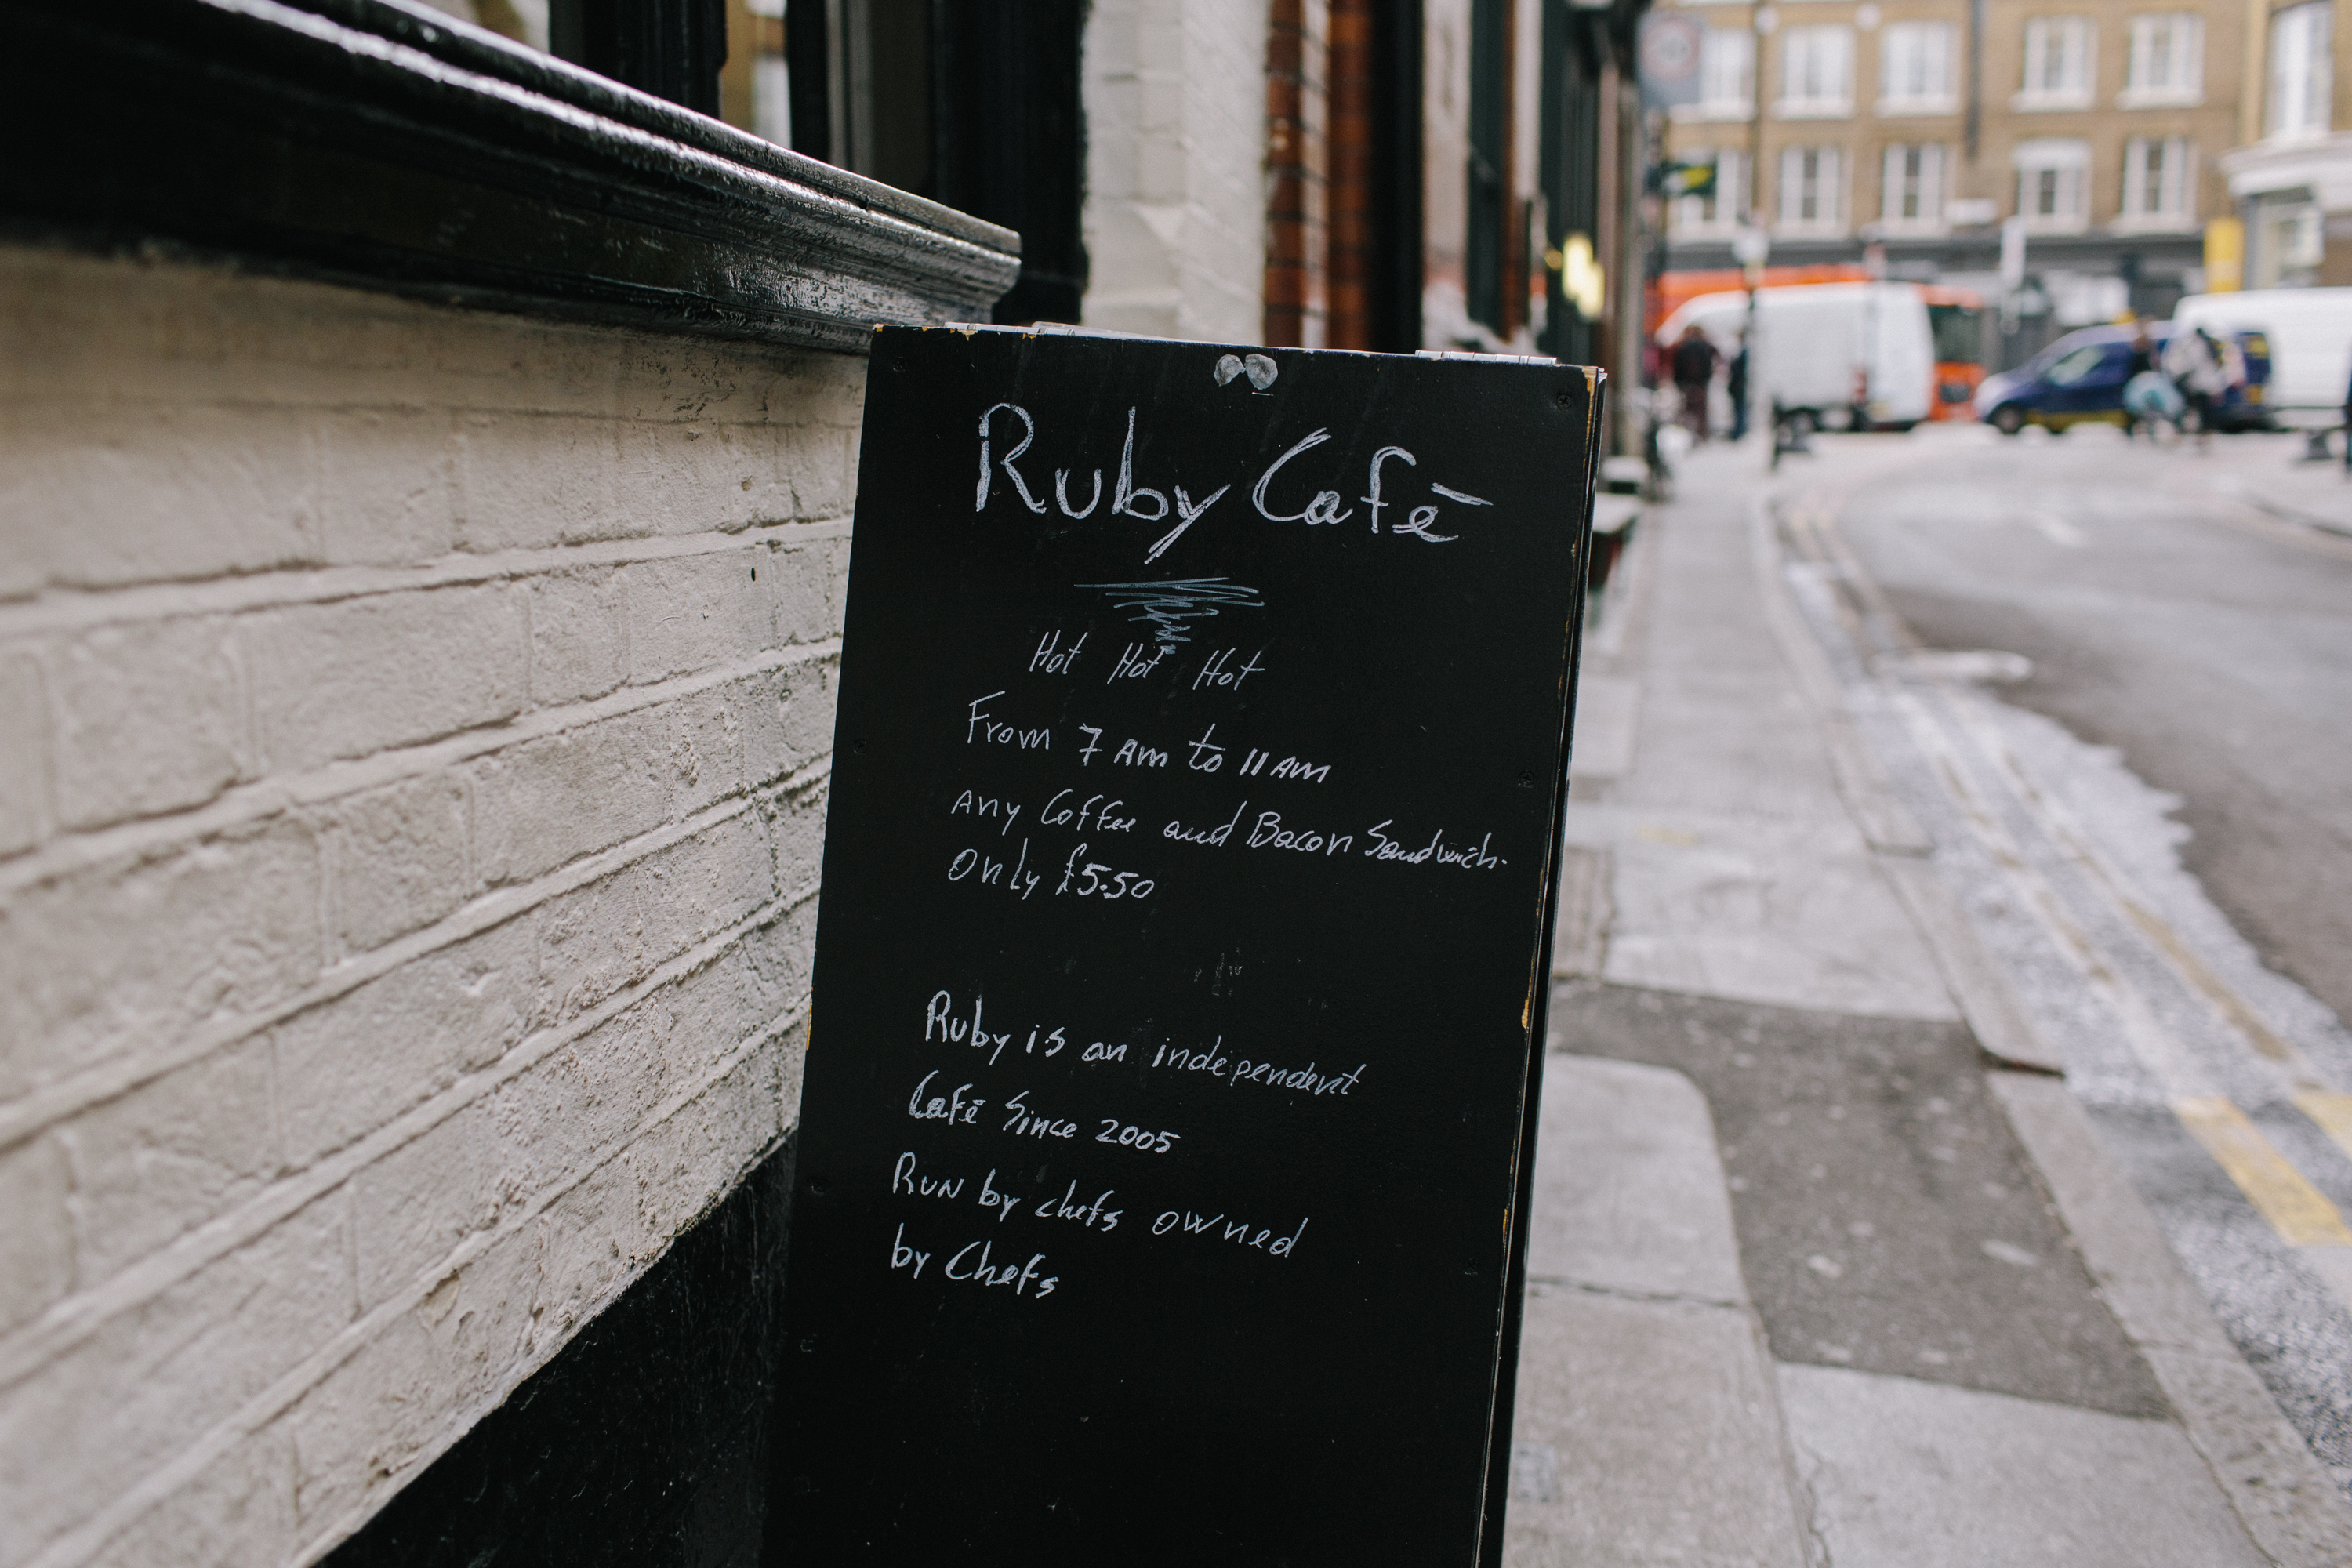 Ruby Café
Hot Hot Hot
From 7 Am to 11 Am
Any Coffee and Bacon Sandwich.
only £5.50
Ruby is an independent
Café Since 2005
Run by chefs owned
by Chefs